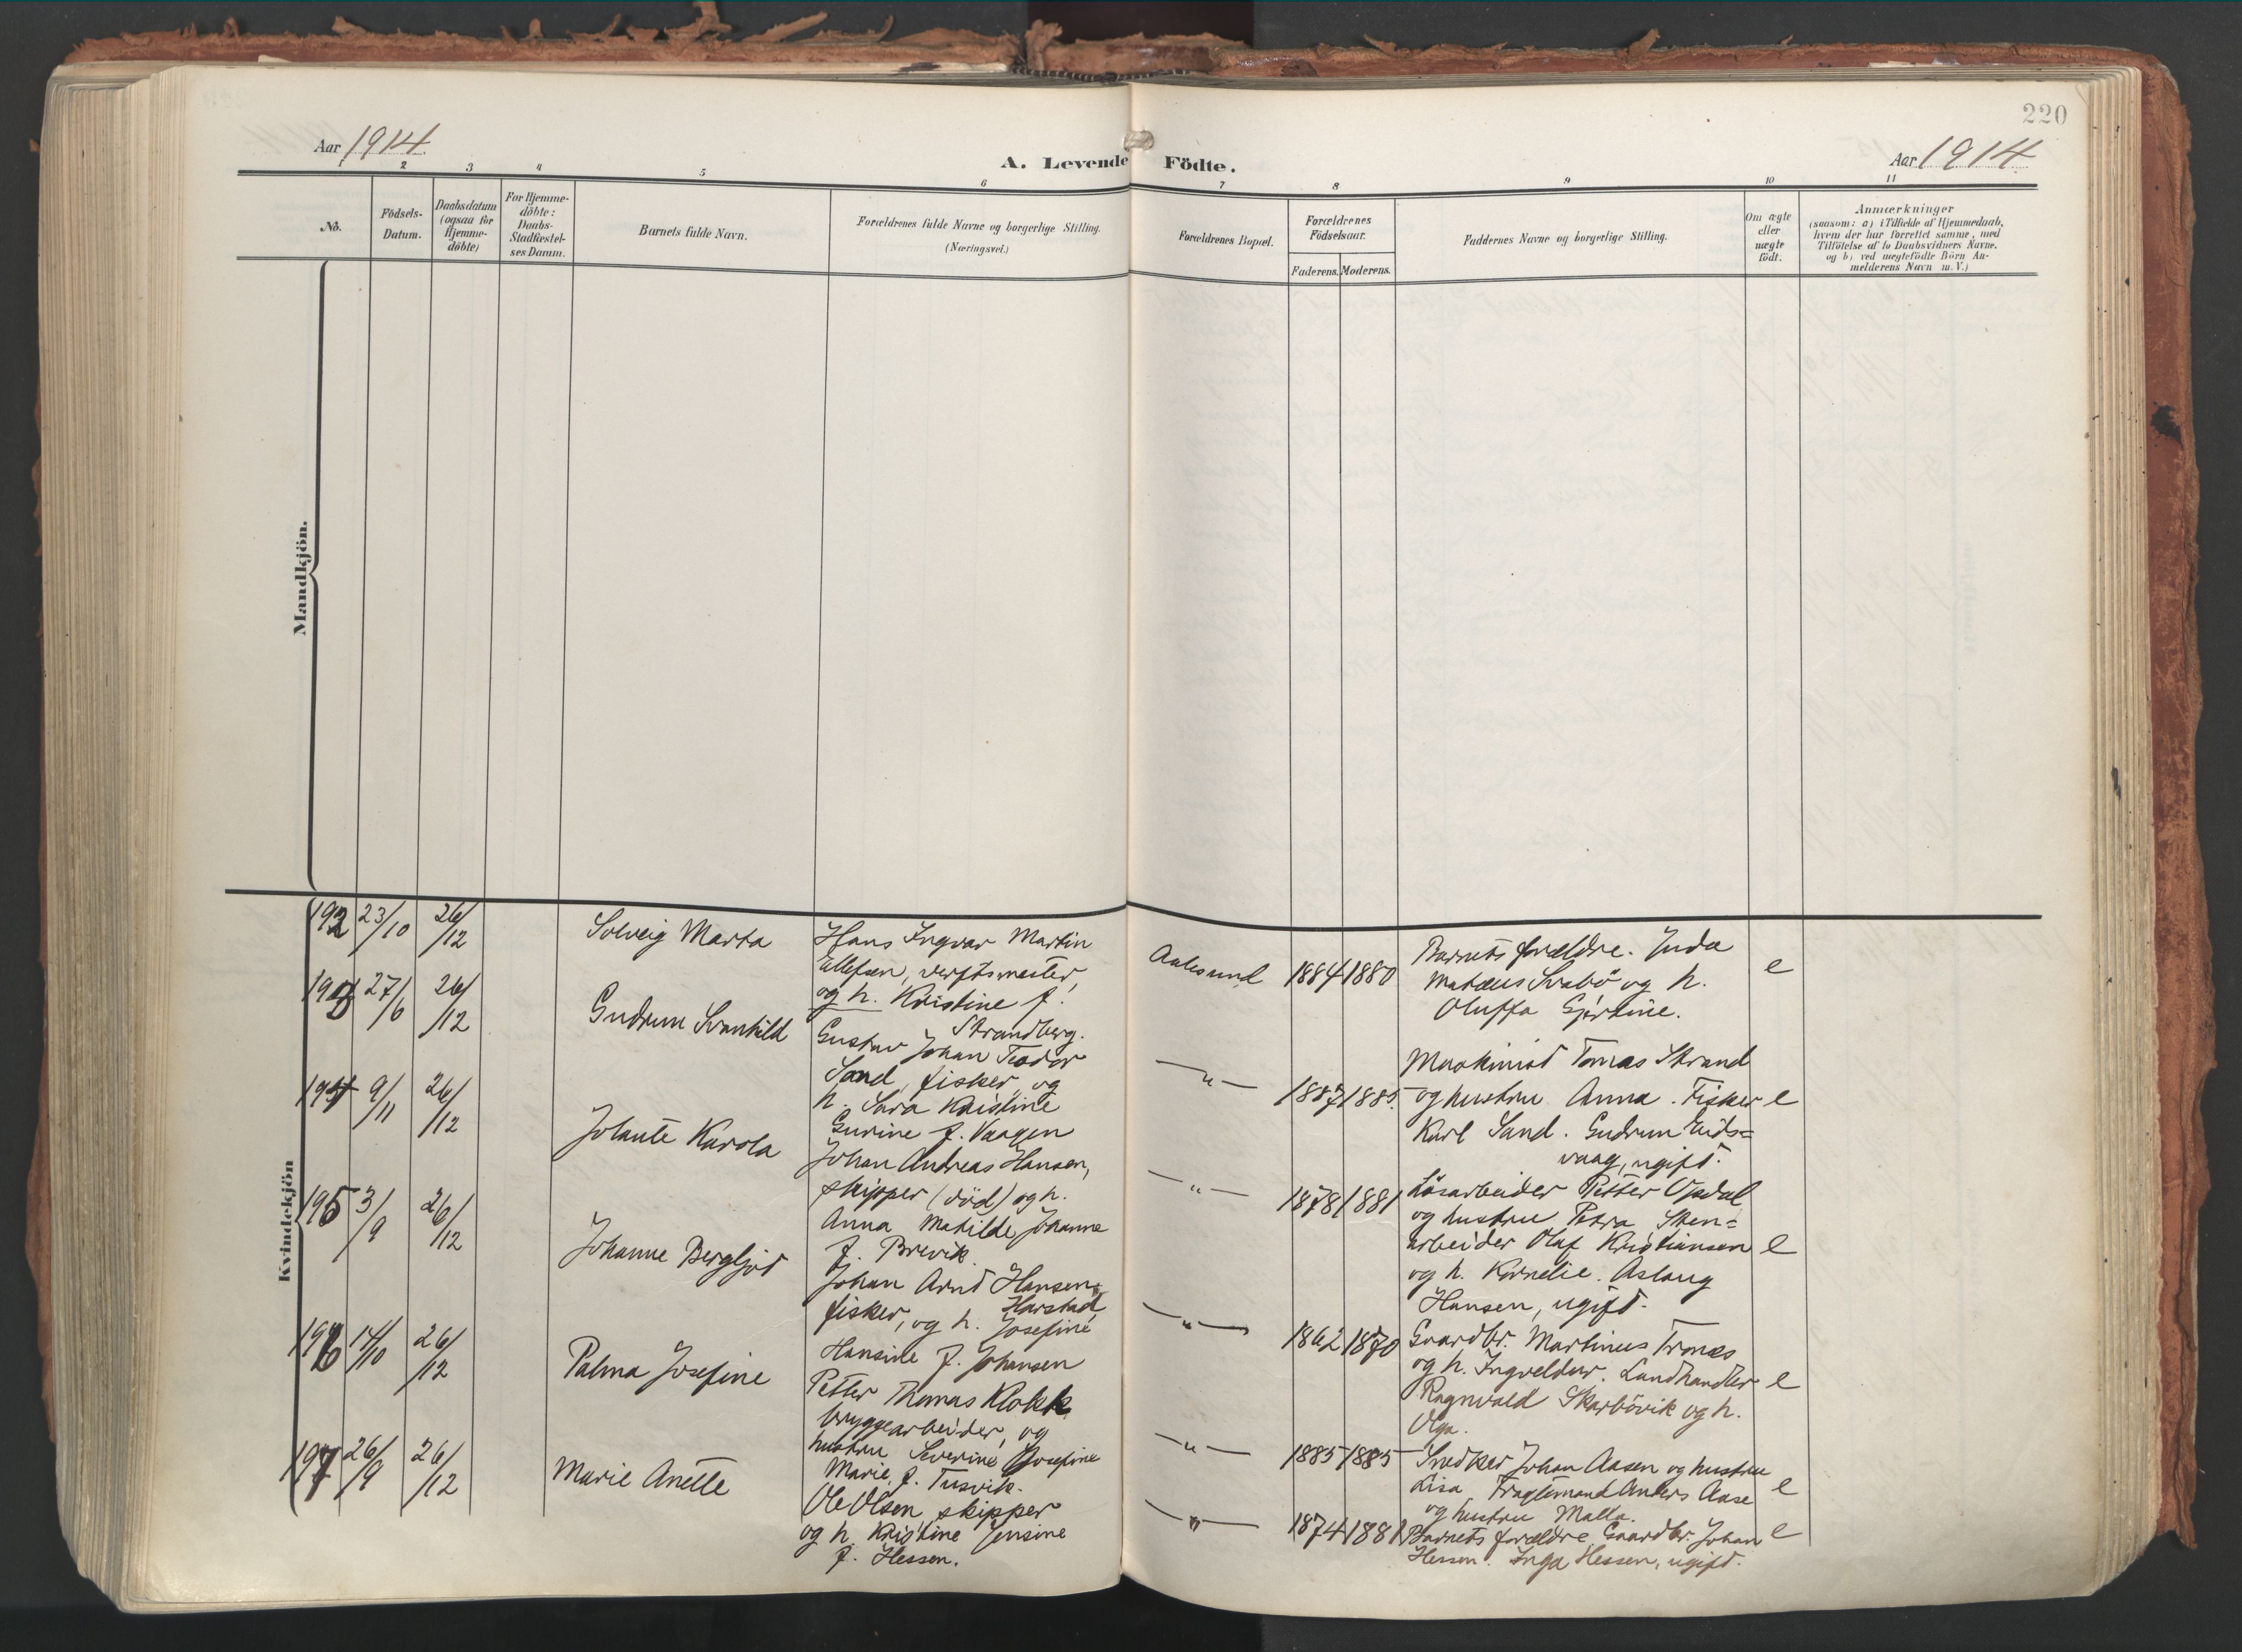 220
Aar 1914
A. Levende Födte.
Aar 1914
1 2 3 4 5 6 7 8 9 10 11
No.
Födsels-Datum.
Daabsdatum (ogsaa for Hjemme-döbte)
For Hjemme-döbte: Daabs-Stadfæstel-ses Datum.
Barnets fulde Navn.
Forældrenes fulde Navne og borgerlige Stilling.
(Næringsvei.)
Forældrenes Bopæl.
Forældrenes Födselsaar.
Faderens. Moderens.
Faddernes Navne og borgerlige Stilling.
Om ægte eller uægte födt.
Anmærkninger
(saasom: a) i Tilfælde af Hjemmedaab,
hvem der har forrettet samme, med
Tilföielse af to Daabsvidners Navne,
og b) ved uægtefödte Börn An-
melderens Navn m.V.)
Mandkjön.
Kvindekjön
192 23/10 26/12 Solveig Marta
Hans Ingvar Martin
Ellefsen, verftsmester,
og h. Kristine f.
Strandberg.
Aalesund 1884 1880
Barnets forældre. Juda
Matæus Svebö og h.
Oluffa Gjertine.
e
193 27/6 26/12 Gudrun Svanhild
Gustav Johan Teodor
Sand, fisker, og
h. Sara Kristine
Gurine f. Vaagen
-"- 1887 1885
Maskinist Tomas Strand
og hustru Anna. Fisker e
Karl Sand. Gudrun Eids=
vaag, ugift.
194 9/11 26/12 Jolante Karola
Johan Andreas Hansen,
skipper (död) og h.
Anna Matilde Johanna
f. Brevik.
-"- 1878 1881
Lösarbeider Petter Opdal
og hustru Petra. Sten=
arbeider Olaf Kristiansen e
og h. Kornelie. Aslaug
Hansen, ugift.
195 3/9 26/12 Johanne Bergljot
Johan Arnt Hansen
Harstad,
fisker, og h. Josefine
Hansine f. Johansen
-"- 1862 1870
Gaardbr. Martinus Tronæs
og h. Ingveldur. Landhandler e
Ragnvald Skarbövik og h.
Olga.
196 14/10 26/12 Palma Josefine
Petter Thomas Klokk
bryggearbeider, og
hustru Severine Josefine
Marie, f. Tusvik.
-"- 1885 1885
Snedker Johan Aasen og hustru
Lisa. Fragtemand Anders Aase e
og hustru Malta.
197 26/9 26/12 Marie Anette
Ole Olsen, skipper
og h. Kristine Jensine
f. Hessen.
-"- 1874 1881
Barnets forældre. Gaardbr. Johan e
Hessen. Inga Hessen, ugift.